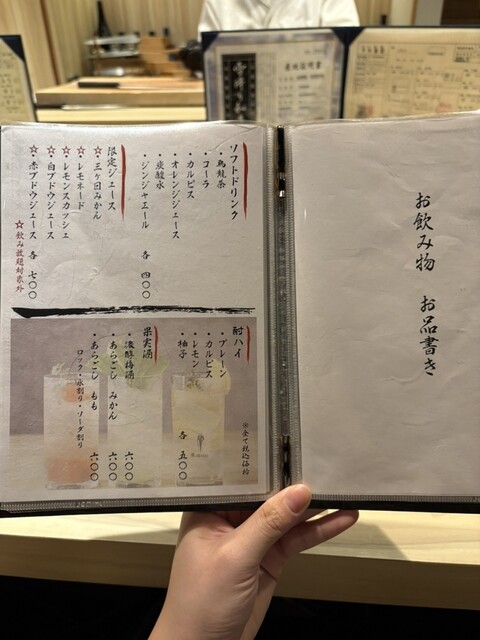 お飲み物 お品書き
ソフトドリンク
・烏龍茶
・コーラ
・カルピス
・オレンジジュース
・炭酸水
・ジンジャエール 各 四〇〇
限定ジュース
☆・三ヶ日みかん
☆・レモネード
☆・レモンスカッシュ
☆・白ブドウジュース
☆・赤ブドウジュース 各 七〇〇
☆飲み放題対象外
酎ハイ
・プレーン
・カルピス
・レモン
・柚子 各 五〇〇
果実酒
・濃醇梅酒 六〇〇
・あらごし みかん 六〇〇
・あらごし もも 六〇〇
ロック・水割り・ソーダ割り
※全て税込価格